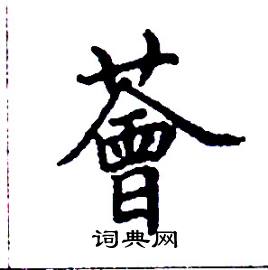 薈
词典网